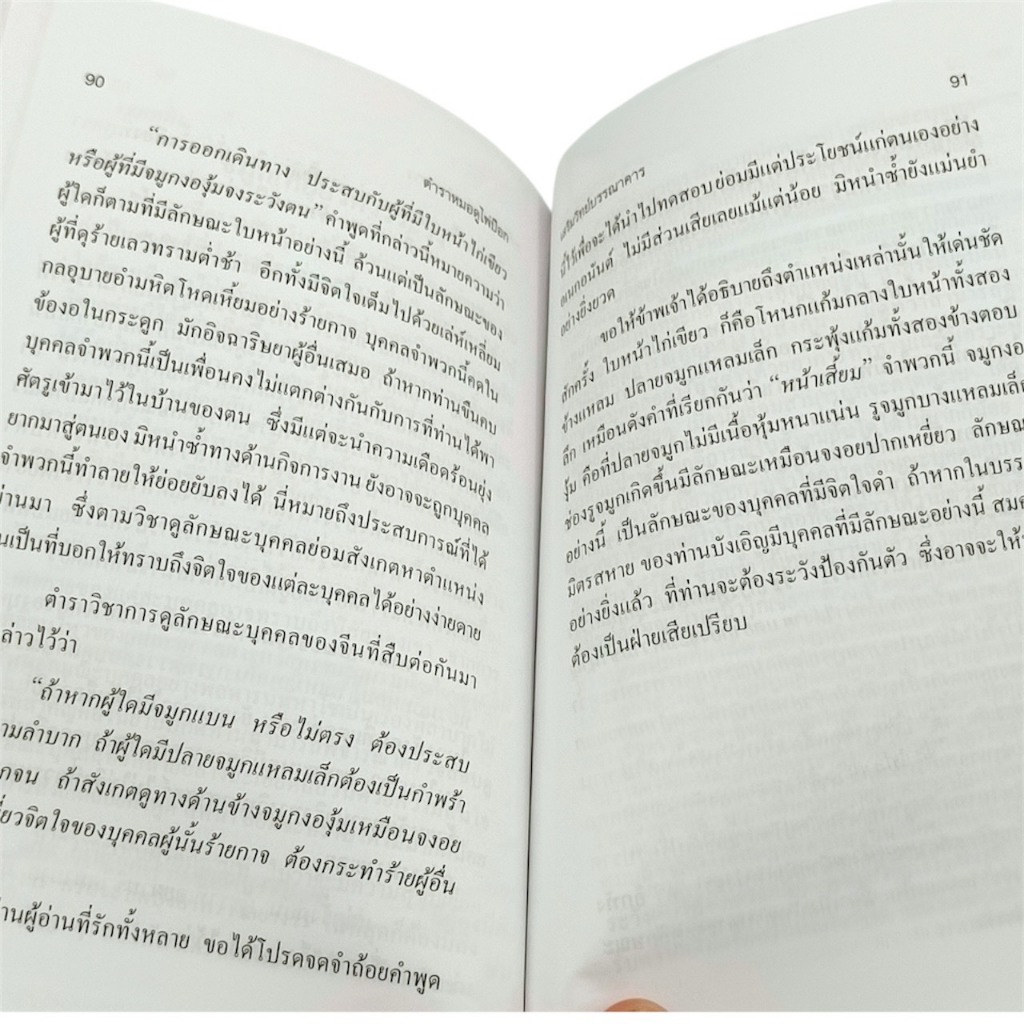 90
ตำราหมอดูไพ่ป๊อก
“การออกเดินทาง ประสบกับผู้ที่มีใบหน้าไก่เขียว
หรือผู้ที่มีจมูกงองุ้มจงระวังตน” คำพูดที่กล่าวนี้หมายความว่า
ผู้ใดก็ตามที่มีลักษณะใบหน้าอย่างนี้ ล้วนแต่เป็นลักษณะของ
ผู้ที่ดุร้ายเลวทรามต่ำช้า อีกทั้งมีจิตใจเต็มไปด้วยเล่ห์เหลี่ยม
กลอุบายอำมหิตโหดเหี้ยมอย่างร้ายกาจ บุคคลจำพวกนี้คดใน
ข้องอในกระดูก มักอิจฉาริษยาผู้อื่นเสมอ ถ้าหากท่านขืนคบ
บุคคลจำพวกนี้เป็นเพื่อนคงไม่แตกต่างกันกับการที่ท่านได้พา
ศัตรูเข้ามาไว้ในบ้านของตน ซึ่งมีแต่จะนำความเดือดร้อนยุ่ง
ยากมาสู่ตนเอง มิหนำซ้ำทางด้านกิจการงาน ยังอาจจะถูกบุคคล
จำพวกนี้ทำลายให้ย่อยยับลงได้ นี่หมายถึงประสบการณ์ที่ได้
ผ่านมา ซึ่งตามวิชาดูลักษณะบุคคลย่อมสังเกตหาตำแหน่ง
เป็นที่บอกให้ทราบถึงจิตใจของแต่ละบุคคลได้อย่างง่ายดาย
ตำราวิชาการดูลักษณะบุคคลของจีนที่สืบต่อกันมา
ล่าวไว้ว่า
“ถ้าหากผู้ใดมีจมูกแบน หรือไม่ตรง ต้องประสบ
ามลำบาก ถ้าผู้ใดมีปลายจมูกแหลมเล็กต้องเป็นกำพร้า
กจน ถ้าสังเกตดูทางด้านข้างจมูกงองุ้มเหมือนจงอย
ี่ยวจิตใจของบุคคลผู้นั้นร้ายกาจ ต้องกระทำร้ายผู้อื่น
านผู้อ่านที่รักทั้งหลาย ขอได้โปรดจดจำถ้อยคำพูด
91
นี้ไว้เพื่อจะได้นำไปทดสอบ ย่อมมีแต่ประโยชน์แก่ตนเองอย่าง
อเนกอนันต์ ไม่มีส่วนเสียเลยแม้แต่น้อย มิหนำซ้ำยังแม่นยำ
อย่างยิ่งยวด
ขอให้ข้าพเจ้าได้อธิบายถึงตำแหน่งเหล่านั้นให้เด่นชัด
สักครั้ง ใบหน้าไก่เขียว ก็คือโหนกแก้มกลางใบหน้าทั้งสอง
ข้างแหลม ปลายจมูกแหลมเล็ก กระพุ้งแก้มทั้งสองข้างตอบ
ลึก เหมือนดังคำที่เรียกกันว่า “หน้าเสี้ยม” จำพวกนี้ จมูกงอ
งุ้ม คือที่ปลายจมูกไม่มีเนื้อหุ้มหนาแน่น รูจมูกบางแหลมเล็ก
ช่องรูจมูกเกิดขึ้นมีลักษณะเหมือนจงอยปากเหยี่ยว ลักษณ
อย่างนี้ เป็นลักษณะของบุคคลที่มีจิตใจดำ ถ้าหากในบรร
มิตรสหาย ของท่านบังเอิญมีบุคคลที่มีลักษณะอย่างนี้ สมค
อย่างยิ่งแล้ว ที่ท่านจะต้องระวังป้องกันตัว ซึ่งอาจจะให้
ต้องเป็นฝ่ายเสียเปรียบ